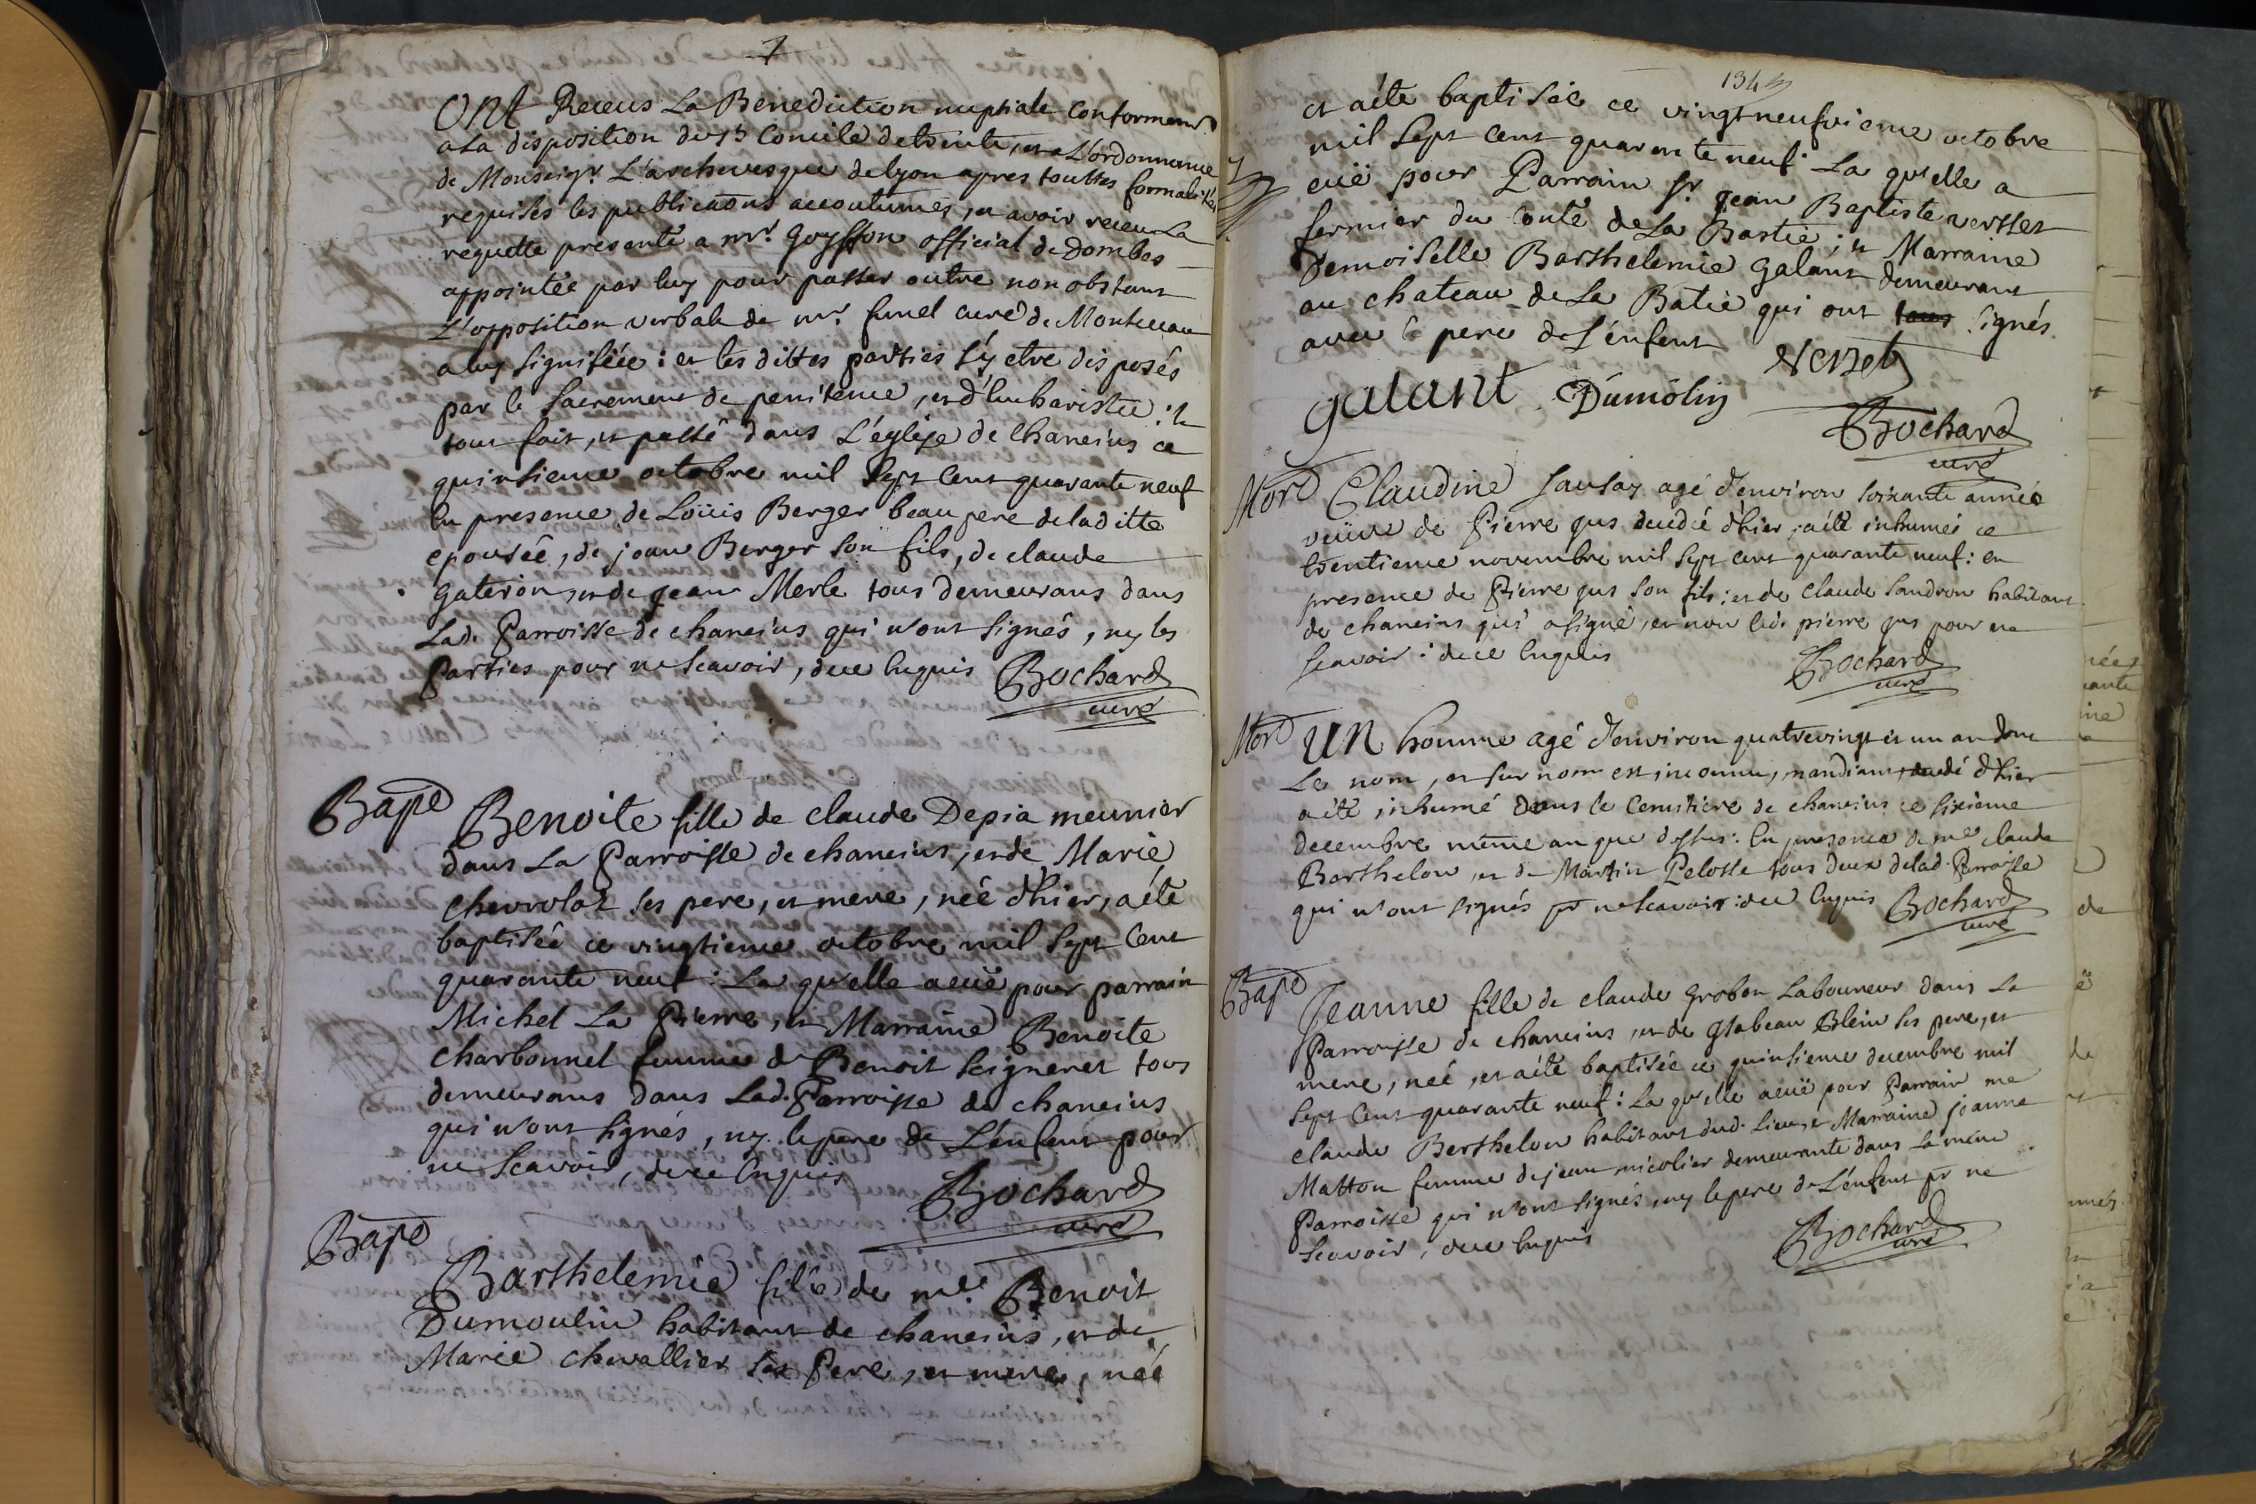 ont Receus La Benediction nuptiale conformem.
a La disposition du St Concile de trente, et a L'ordonnance
de Monseigr. L'archevesque de lyon apres touttes formalités
requises les publications accoutumés, et avoir receu La
requette presenté a mr. Goyffon official de Dombes
appointée par luy pour passer outre nonobstant
L'opposition verbale de mr. funel curé de Montceau
a luy signifiée : et les dittes parties s'y etre disposés
par le Sacrement de penitence, et d'Eucharistie : le
tout fait, et passé dans L'eglise de Chaneins ce
quinsieme octobre mil Sept Cent quarante neuf
En presence de Loüis Berger beau pere de laditte
epousée, de jean Berger son fils, de claude
gateron, et de jean Merle tous demeurans dans
Lad. Parroisse de chaneins qui n'ont signés, ny les
Parties pour ne Scavoir, de ce Enquis Bochard
curé
Bapt Benoite fille de claude Depia meunier
dans La Parroisse de chaneins, et de Marie
chevrolat ses pere, et mere, née d'hier, a été
baptisée ce vingtieme octobre mil Sept Cent
quarante neuf : La qu'elle a eüe pour parrain
Michel La Pierre, et Marraine Benoite
charbonnel femme de Benoit Seigneret tous
demeurans dans Lad. Parroisse de chaneins
qui n'ont signés, ny le pere de L'enfent pour
ne Scavoir, de ce Enquis Bochard
curé
Bapt
Barthelemie fille de me. Benoit
Dumoulin habitant de chaneins, et de
Marie chevallier ses Pere, et mere, née
134
et a été baptisée ce vingt neufvieme octobre
mil Sept Cent quarente neuf. La qu'elle a
eüe pour Parrain Sr. jean Baptiste versset
fermier du Conté de La Bastie ; et Marraine
Demoiselle Barthelemie galant demeurant
au chateau de La Batie qui ont tous signés
avec le pere de L'enfent Verzet
galant Dumolin
Bochard
curé
Mort Claudine Sausay agé d'environ soixante année
veüve de Pierre gus decedé d'hier, a été inhumée ce
trentieme novembre mil Sept Cent quarante neuf : en
presence de Pierre gus son fils : et de Claude Sandron habitant
de chaneins qui a signé, et non led. pierre gus pour ne
scavoir : de ce Enquis Bochard
curé
Mort Un homme agé d'environ quatrevingt et un an dont
Le nom, et sur nom est inconnu, mandiant, decedé d'hier
a été inhumé dans le Cemitiere de chaneins ce sixieme
decembre même an que dessus : En presence de me claude
Barthelon, et de Martin Pelosse tous deux de lad. Parroisse
qui n'ont signés pr ne Scavoir : de ce Enquis Bochard
curé
Bapt
Jeanne fille de claude Grobon Laboureur dans La
Parroisse de chaneins, et de Glabeau Blein ses pere, et
mere, née, et a été baptisée ce quinsieme decembre mil
Sept Cent quarante neuf : La qu'elle a eüe pour Parrain me
claude Berthelon habitant dud. Lieu, et Marraine jeanne
Matton femme de jean micolier demeurante dans La même
Parroisse qui n'ont signés, ny le pere de L'enfent pr ne
Scavoir, de ce Enquis Bochard
curé